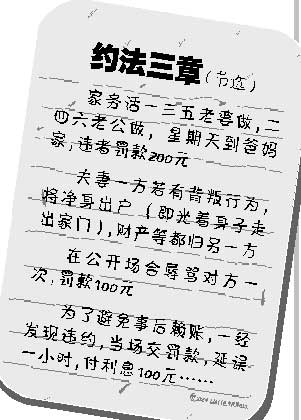 约法三章(节选)
家务活一三五老婆做,二
四六老公做,星期天到爸妈
家,违者罚款200元
夫妻一方若有背叛行为,
将净身出户(即光着身子走
出家门),财产等都归另一方
在公开场合辱骂对方一
次,罚款100元
为了避免事后赖账,一经
发现违约,当场交罚款,延误
一小时,付利息100元……